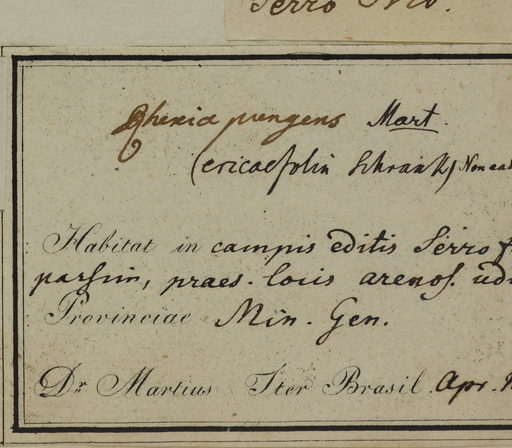 Serro Frio.
Rhexia pungens Mart.
(ericaefolia Schrank) Non
Habitat in campis editis Serro
passim, praes. locis arenos. ud
Provinciae Min. Gen.
Dr Martius Iter Brasil. Apr.